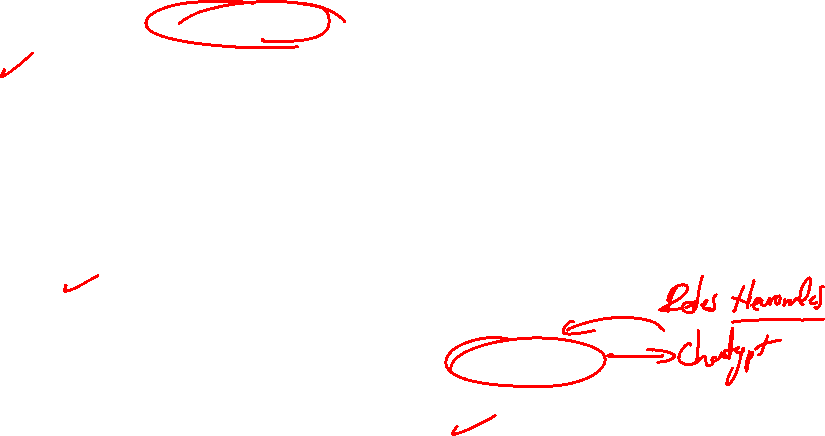 Redes Neuronales
Chatgpt